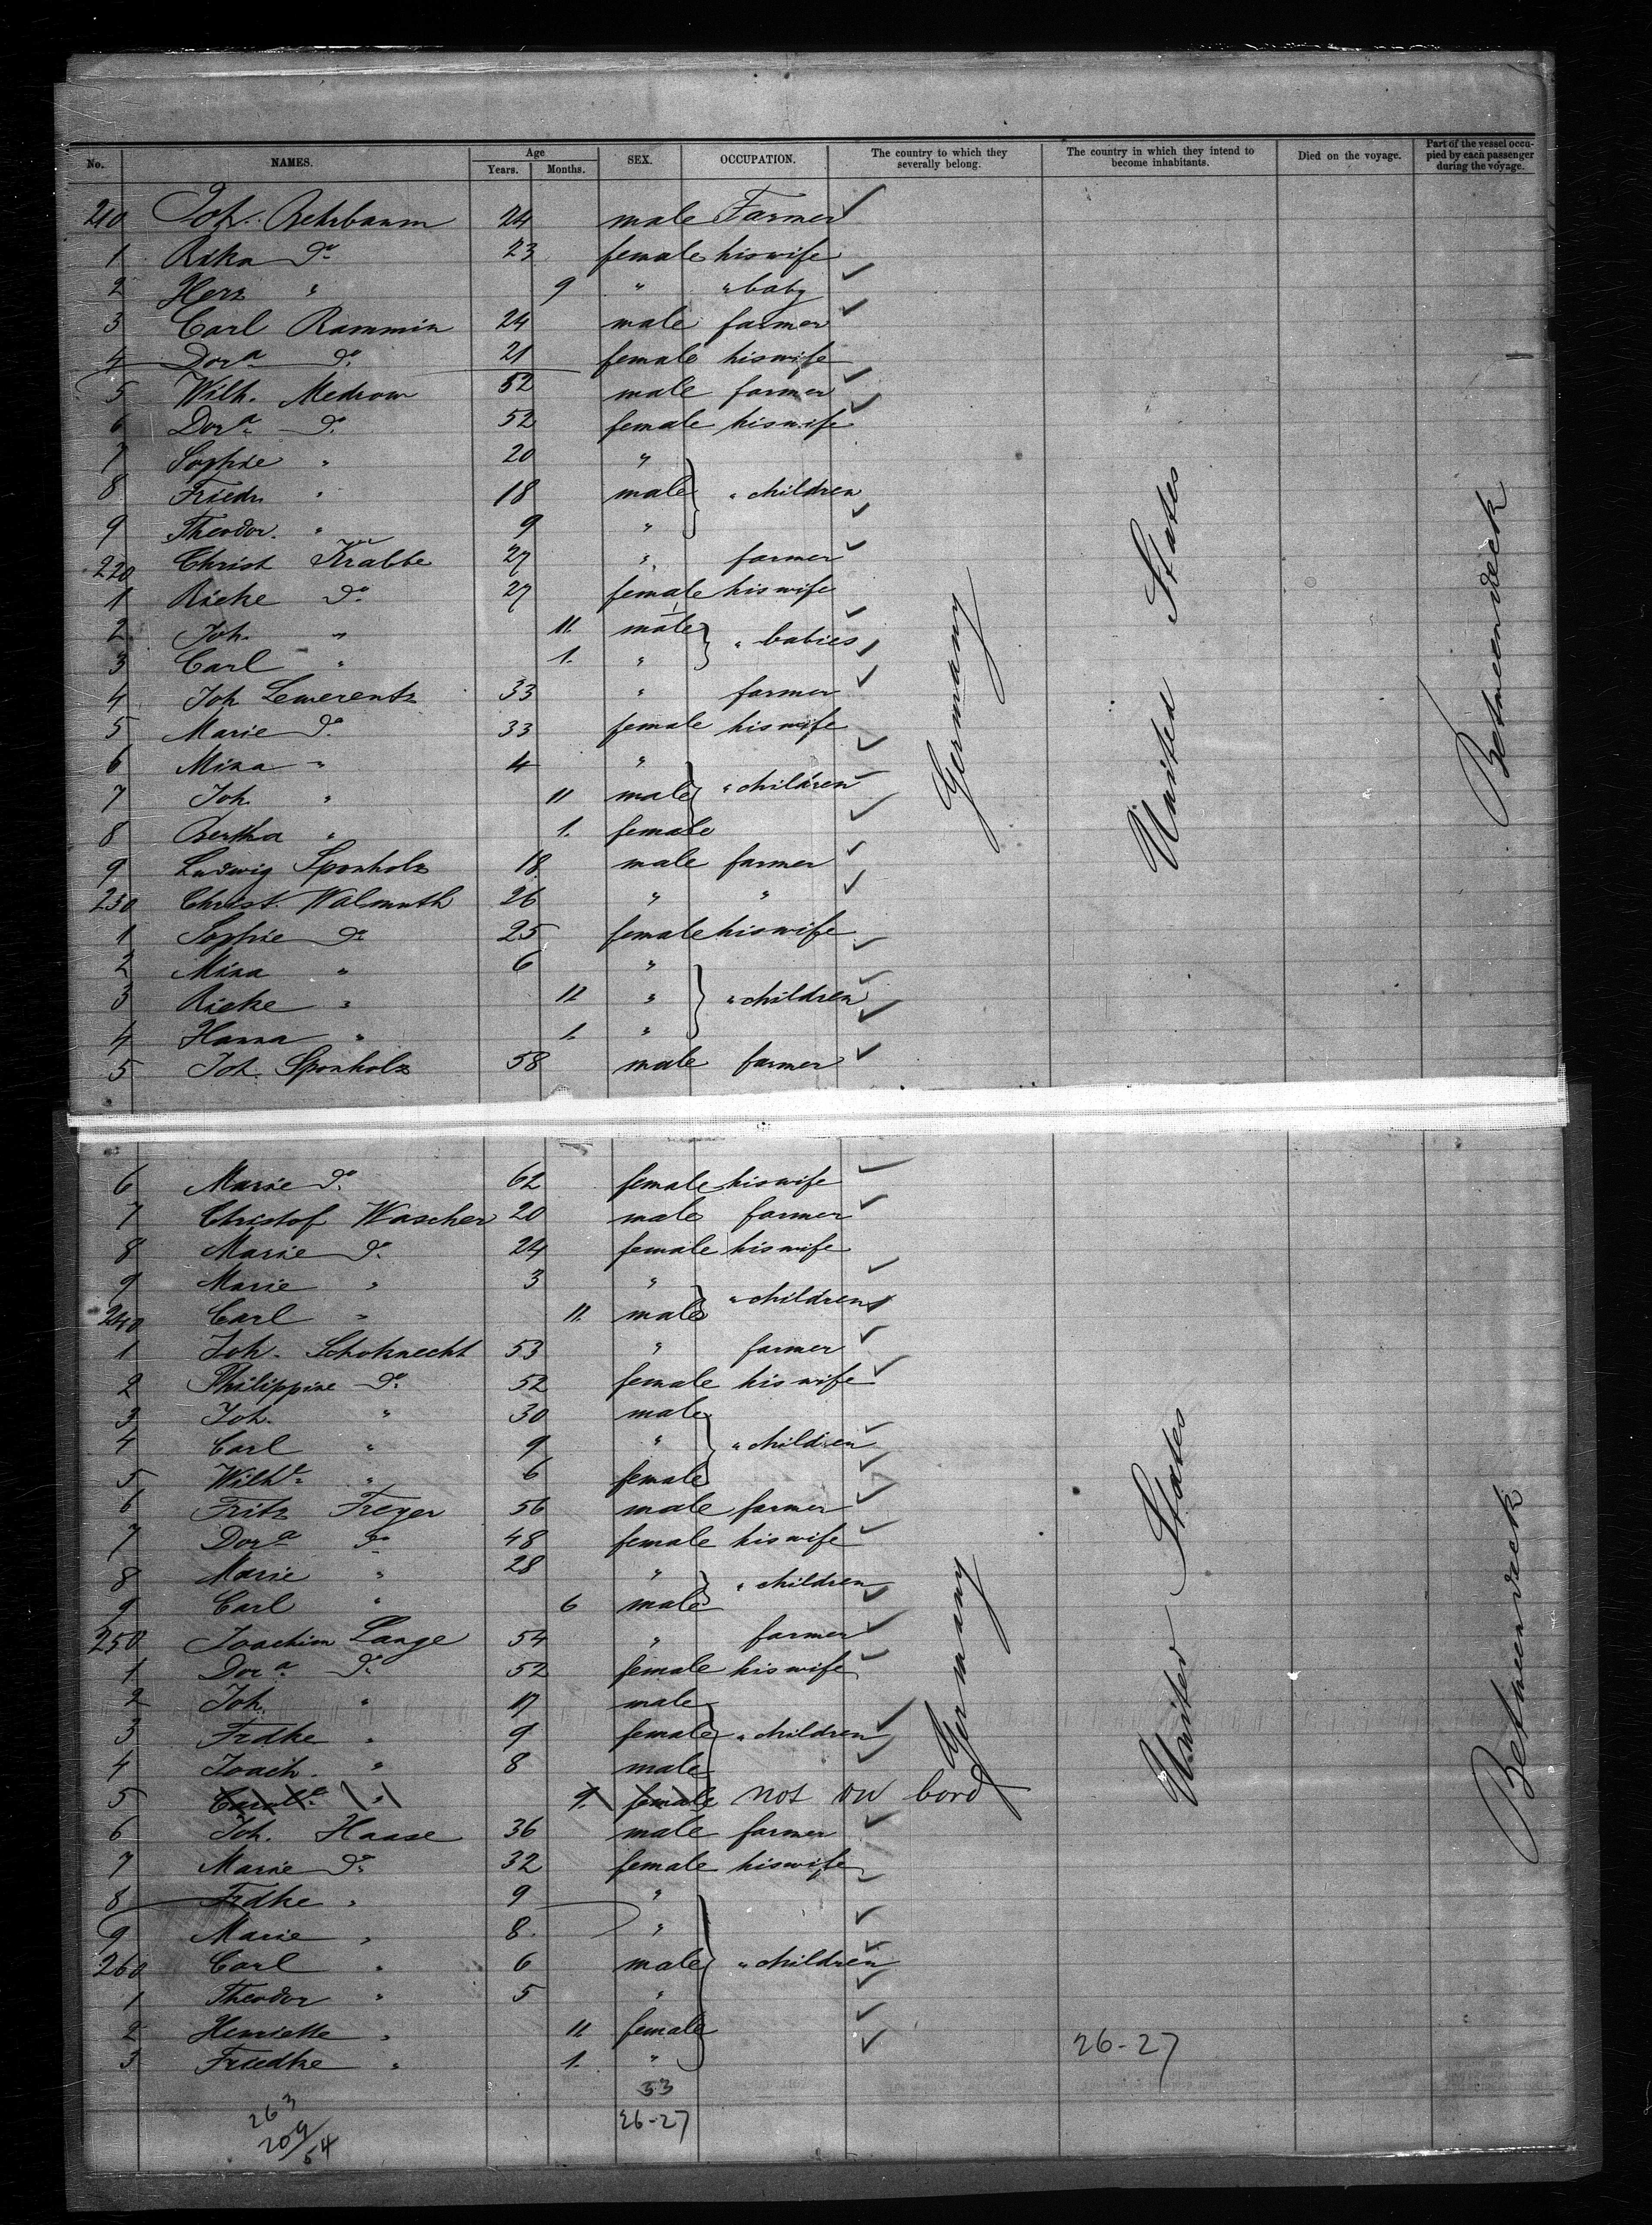 No. NAMES. Age Years. Months. SEX. OCCUPATION. The country to which they severally belong. The country in which they intend to become inhabitants. Died on the voyage. Part of the vessel occupied by each passenger during the voyage.
210 Joh. Behrbaum 24 male Farmer
1 Rika do 23 female his wife
2 Herz " 9 " " baby
3 Carl Rammin 24 male farmer
4 Dora do 21 female his wife
5 Wilh. Medrow 52 male farmer
6 Dora do 52 female his wife
7 Sophie " 20 "
8 Friedr. " 18 male " children
9 Theodor. " 9 "
220 Christ Krabbe 27 " farmer
1 Rieke do 27 female his wife
2 Joh. " 11. male " babies
3 Carl " 1. "
4 Joh Lewerentz 33 " farmer
5 Marie do 33 female his wife
6 Mina " 4 "
7 Joh. " 11 male " children
8 Bertha " 1. female
9 Ludwig Sponholz 18 male farmer
230 Christ. Walmuth 26 " "
1 Sophie do 25 female his wife
2 Mina " 6 "
3 Rieke " 11 " " children
4 Hanna " 1. "
5 Joh. Sponholz 58 male farmer
Germany
United States
Betweendeck
6 Marie do 62 female his wife
7 Christof Wascher 20 male farmer
8 Marie do 24 female his wife
9 Marie " 3 "
240 Carl " 11. male " children
1 Joh. Schoknecht 53 " farmer
2 Philippine do 52 female his wife
3 Joh. " 30 male
4 Carl " 9 " " children
5 Wilhe " 6 female
6 Fritz Freyer 56 male farmer
7 Dora do 48 female his wife
8 Marie " 28 " " children
9 Carl " 6 male
250 Joachim Lange 54 " farmer
1 Dora do 52 female his wife
2 Joh. " 17 male
3 Frdke " 9 female " children
4 Joach. " 8 male
5 " 9. female not on bord
6 Joh. Haase 36 male farmer
7 Marie do 32 female his wife
8 Frdke " 9 "
9 Marie " 8. "
260 Carl " 6 male " children
1 Theodor " 5 "
2 Henriette " 11 female
3 Friedke " 1. "
Germany
United States
Betweendeck
26-27
53
26-27
263
209/54